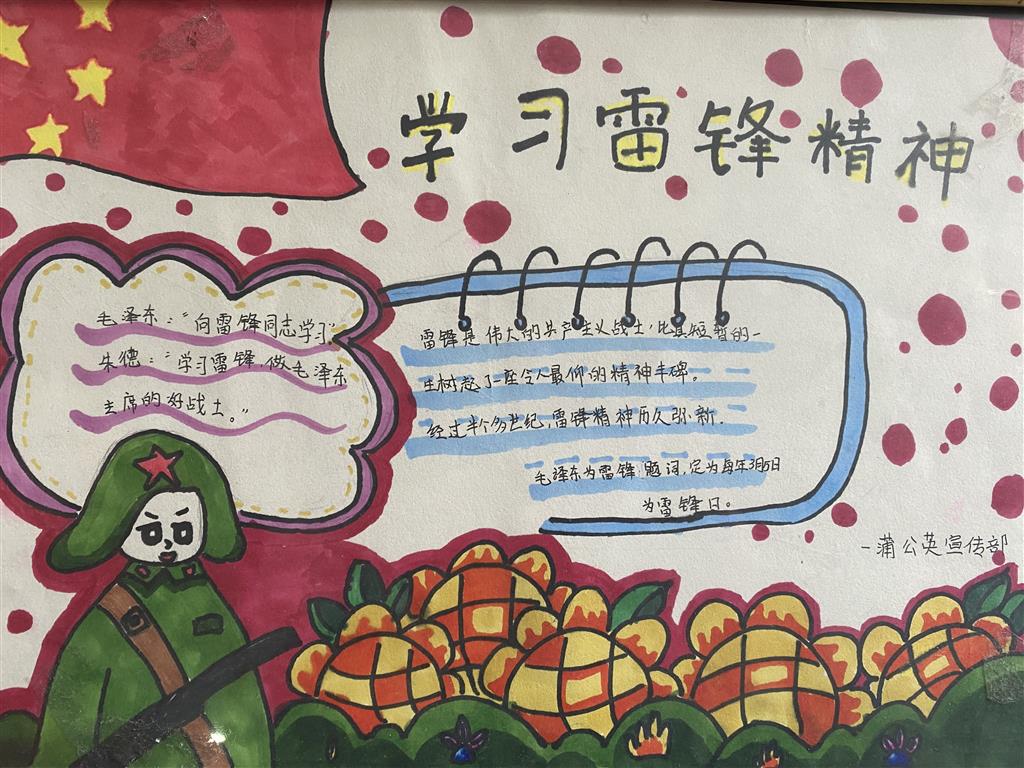 学习雷锋精神
毛泽东："向雷锋同志学习"
朱德："学习雷锋，做毛泽东
主席的好战士。"
雷锋是伟大的共产主义战士，比其短暂的一
生树起了一座令人景仰的精神丰碑。
经过半个多世纪，雷锋精神历久弥新.
毛泽东为雷锋题词，定为每年3月5日
为雷锋日。
-蒲公英宣传部